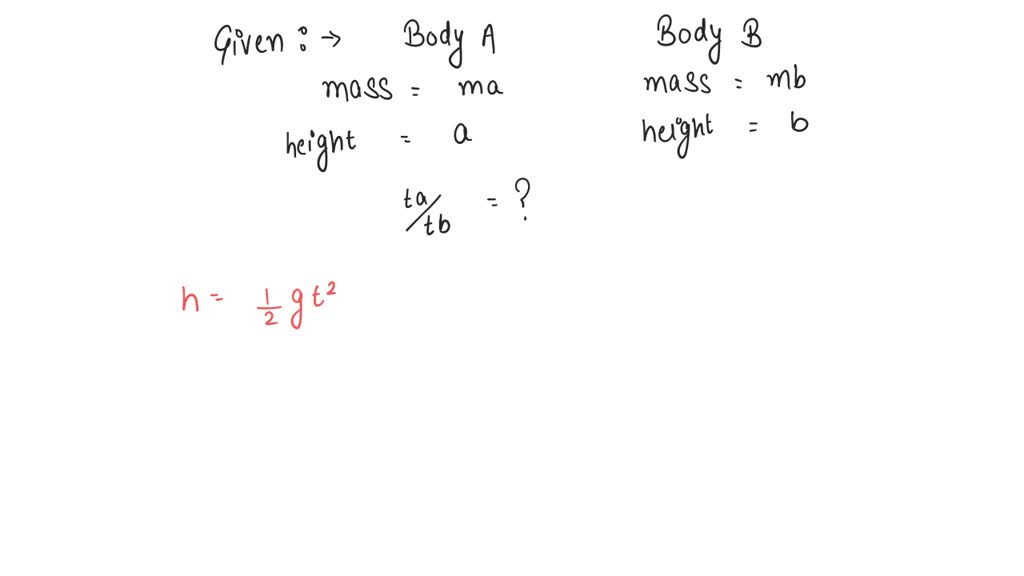 Given : → Body A Body B
mass = ma mass = mb
height = a height = b
ta/tb = ?
h = 1/2 gt²